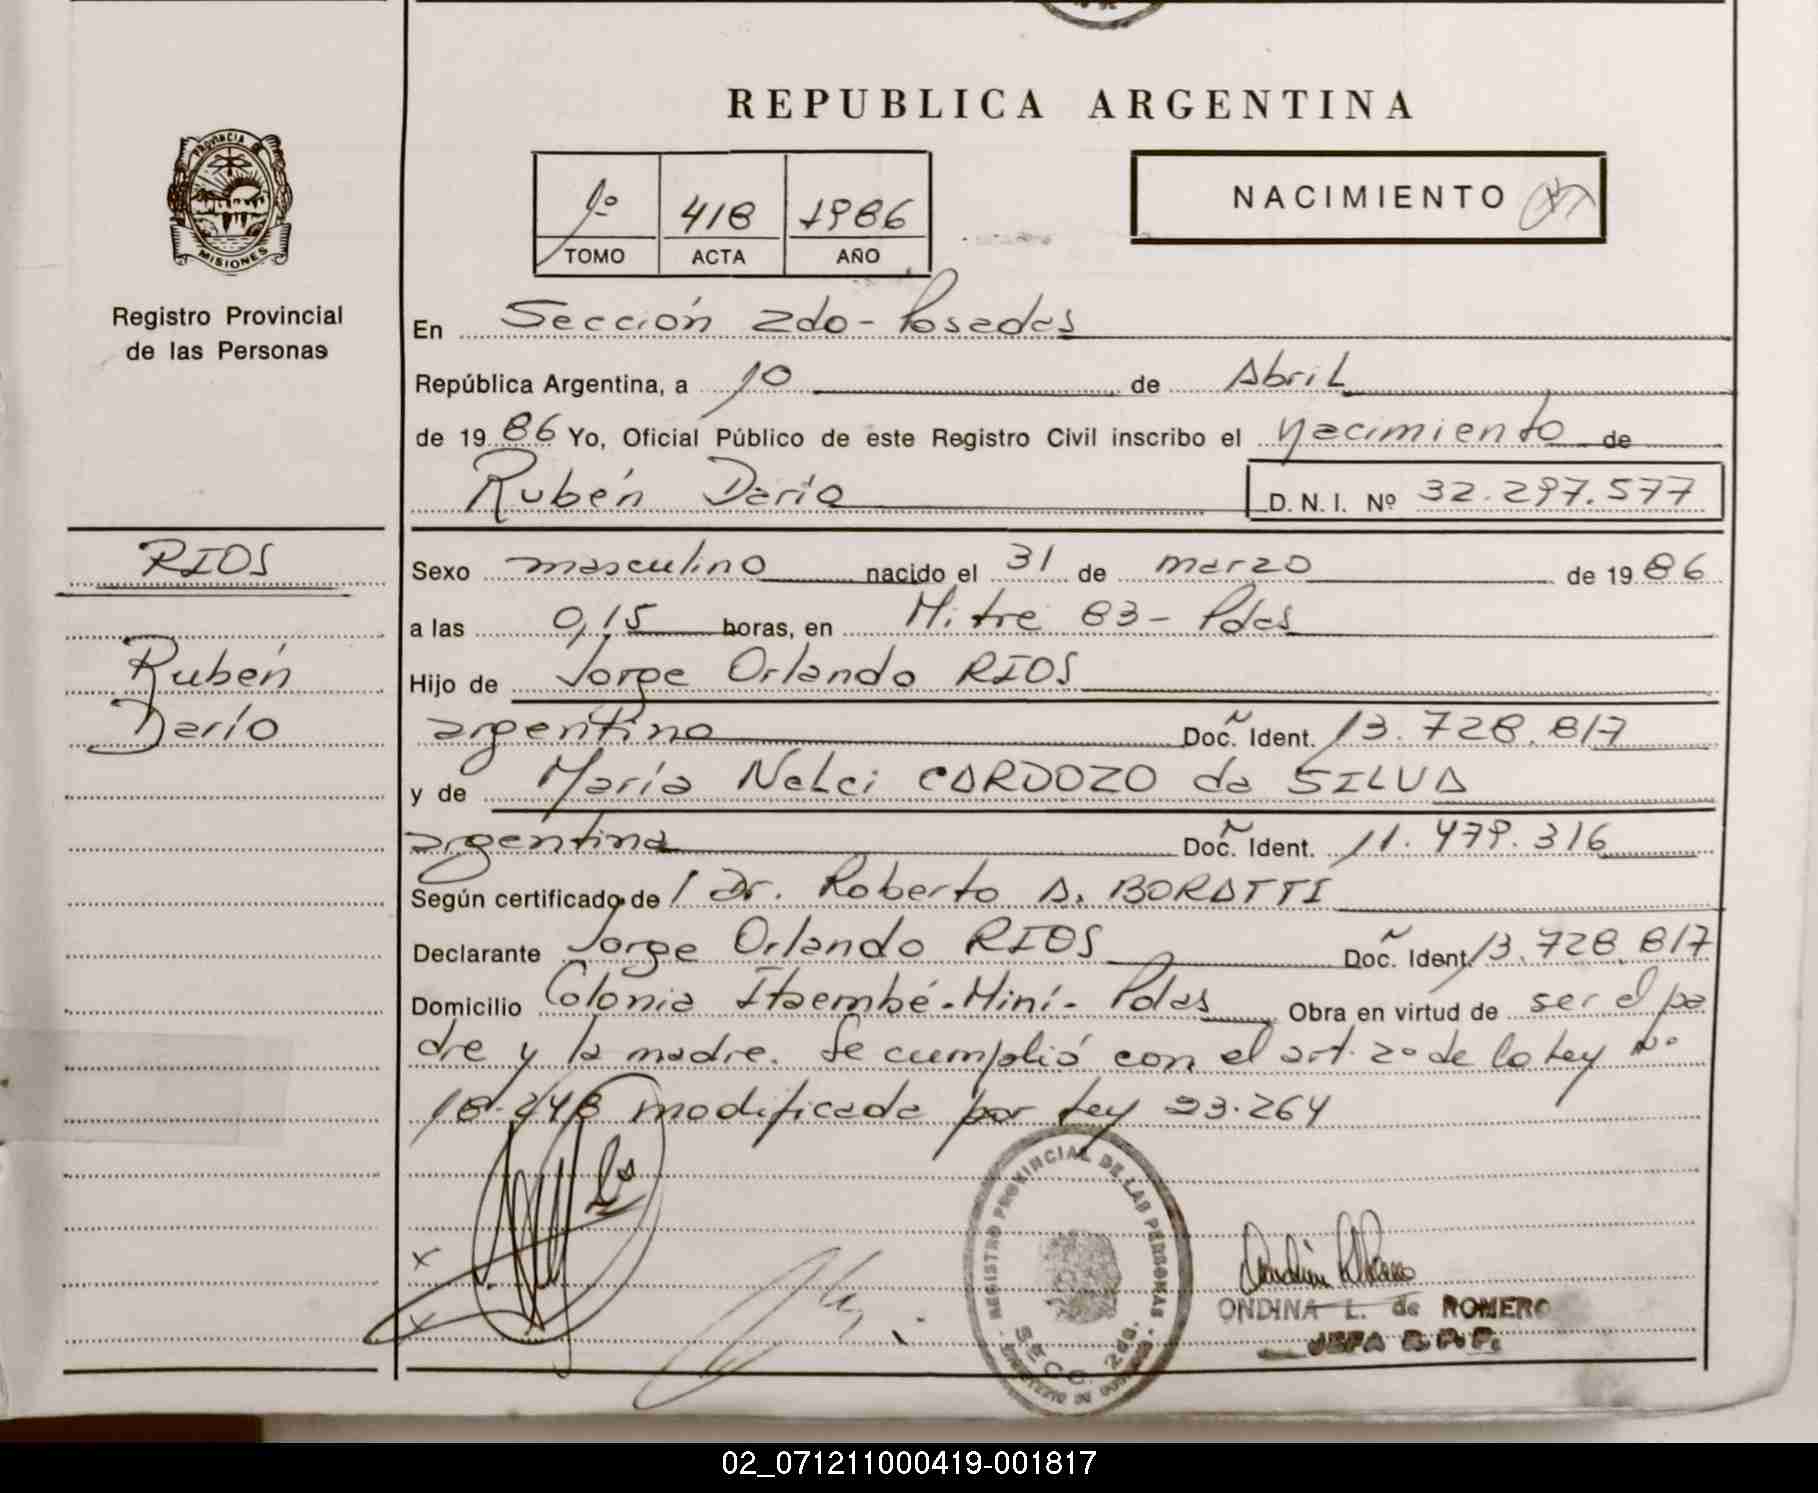 REPUBLICA ARGENTINA
PROVINCIA DE
MISIONES
Registro Provincial
de las Personas
1º 418 1986
TOMO ACTA AÑO
NACIMIENTO
En Sección 2do - Posadas
República Argentina, a 10 de Abril
de 1986 Yo, Oficial Público de este Registro Civil inscribo el Nacimiento de
Rubén Darío D.N.I. Nº 32.297.577
RIOS
Rubén
Darío
Sexo masculino nacido el 31 de marzo de 1986
a las 0,15 horas, en Mitre 83 - Pdas
Hijo de Jorge Orlando RIOS
argentino Doc. Ident. 13.728.817
y de María Nelci CARDOZO da SILVA
argentina Doc. Ident. 11.479.316
Según certificado de / Dr. Roberto A. BORATTI
Declarante Jorge Orlando RIOS Doc. Ident. 13.728.817
Domicilio Colonia Itaembé-Miní - Pdas Obra en virtud de ser el pa
dre y la madre. Se cumplió con el art. 2º de la Ley Nº
18.248 modificada por Ley 23.264
REGISTRO PROVINCIAL DE LAS PERSONAS
SECC. 2da.
ONDINA L. de ROMERO
JEFA R.P.P.
02_071211000419-001817